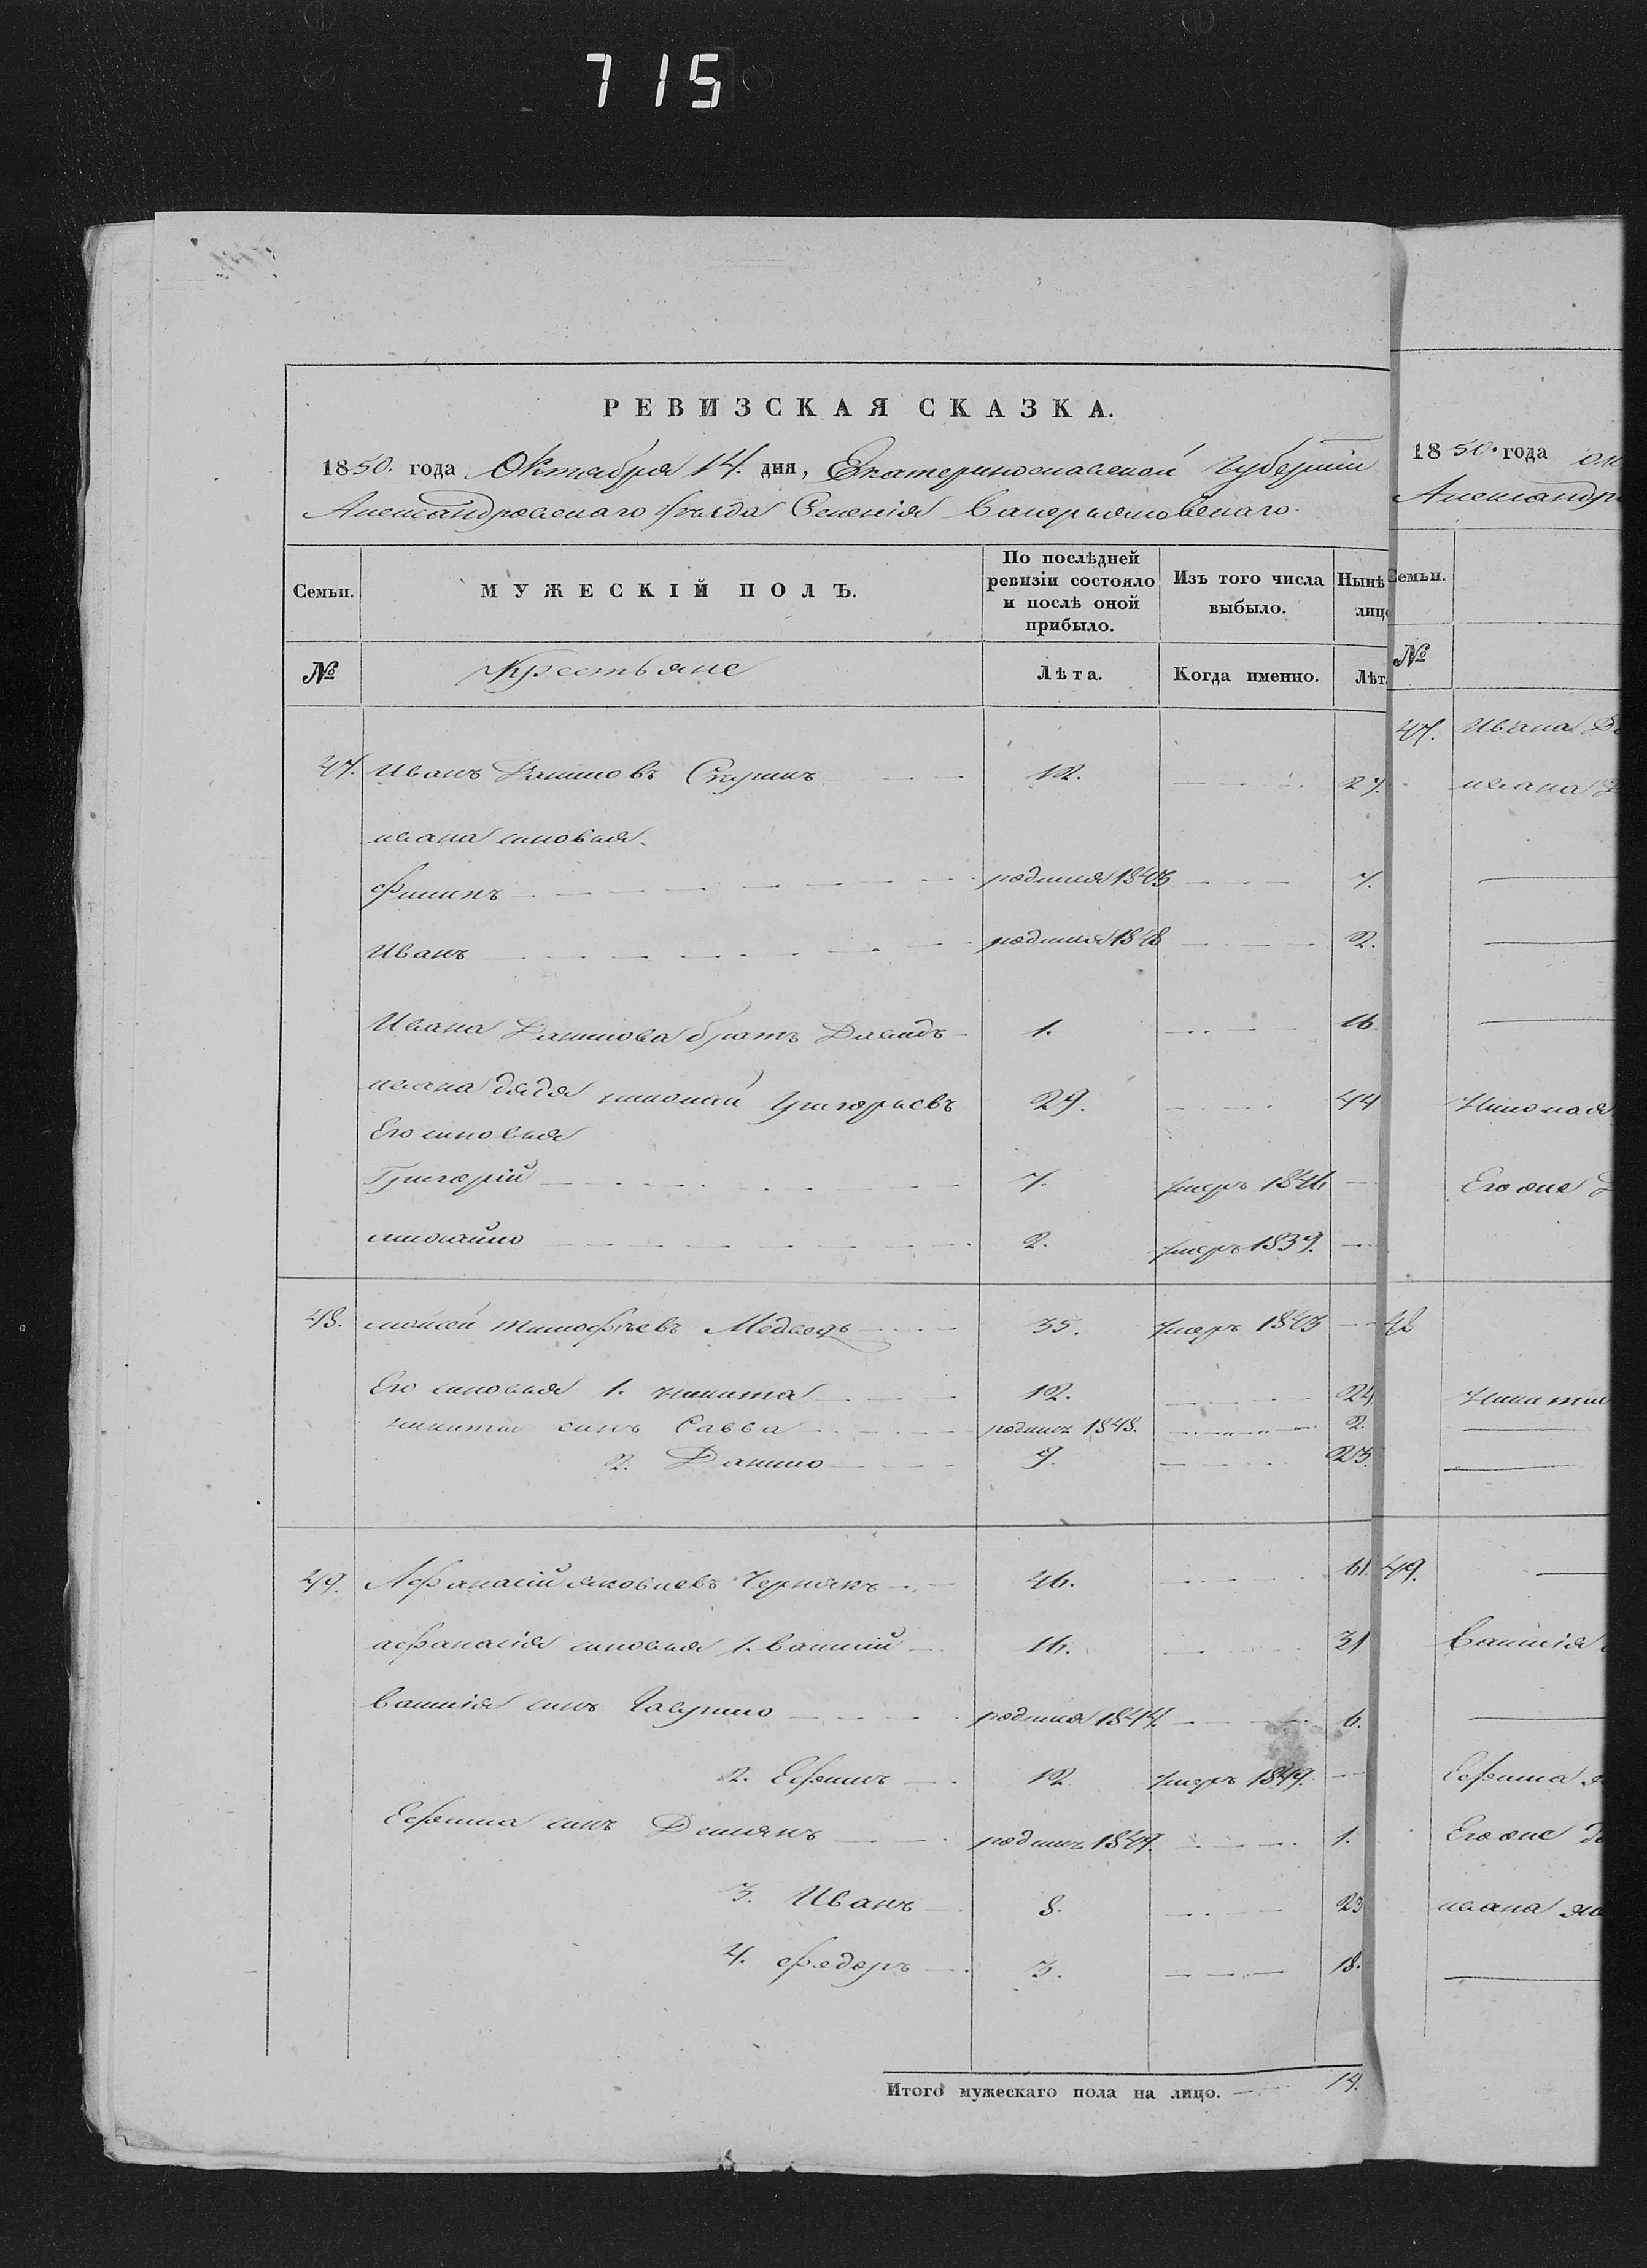 715
РЕВИЗСКАЯ СКАЗКА.
1850. года Октября 14. дня, Екатеринославской Губернiи
Александровскаго Уѣзда Селенiя Валерьяновскаго.
Семьи. МУЖЕСКIЙ ПОЛЪ. По послѣдней ревизiи состояло и послѣ оной прибыло. Изъ того числа выбыло. Нынѣ лицо
№ Крестьяне Лѣта. Когда именно. Лѣт
47. Иванъ Даниловъ 12. 27.
ивана сыновья
Филипъ родился 1843 7.
Иванъ родился 1848 2.
Ивана Данилова братъ Давидъ 1. 16
ивана дядя николай Григорьевъ 29. 44
Его сыновья
Григорiй 7. умеръ 1846
михайло 2. умеръ 1839.
48. моисей тимофѣевъ Медведь 35. умеръ 1843
Его сыновья 1. никита 12. 27.
никиты сынъ Савва родился 1848. 2.
2. Данило 9. 23.
49. Афанасiй яковлевъ Чернякъ 46. 61.
афанасiя сыновья 1. василiй 16. 31
василiя сынъ Гаврило родился 1844. 6.
2. Ефимъ 12 умеръ 1849.
Ефима сынъ Демянъ родился 1849. 1.
3. Иванъ 8. 23
4. федоръ 3. 18.
Итого мужескаго пола на лицо. 14.
1850. года
Александр
Семьи.
№
47. Ивана
ивана
Николая
Его же
48
Никиты
49.
василiя
Ефима
Его же
ивана